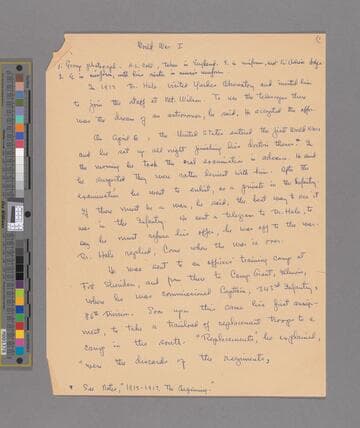 World War I
In 1917 Dr. Hale visited Yerkes Observatory and invited him
to join the staff at Mt. Wilson. To use the telescopes there
was the dream of an astronomer, he said. He accepted the offer.
On April 6, the United States entered the first World War
and he sat up all night finishing his doctor thesis.* In
the morning he took the oral examination in advance. He said
he suspected they were rather lenient with him. After the
examination he went to enlist, as a private in the Infantry.
If there must be a war, he said, the best way to see it
was in the Infantry. He sent a telegram to Dr. Hale, to
say he must refuse his offer, he was off to the war.
Dr. Hale replied, Come when the war is over.
He was sent to an officers training camp at
Fort Sheridan, and from there to Camp Grant, Illinois,
where he was commissioned Captain, 343rd Infantry,
86th Division. Soon upon this came his first assign-
ment, to take a trainload of replacement troops to a
camp in the south. "Replacements", he explained,
"were the discards of the regiments,
* See Notes, "1915-1917, The Beginning"